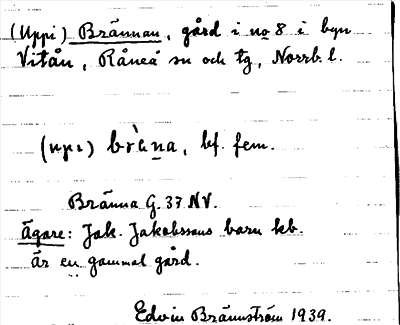 (Uppi) Brännan, gård i no 8 i byn
Vitån, Råneå sn och tg, Norrb. l.
(upi) brèna, bf. fem.
Bränna G. 37 NV.
Ägare: Jak. Jakobssons barn kb.
är en gammal gård.
Edvin Brännström 1939.